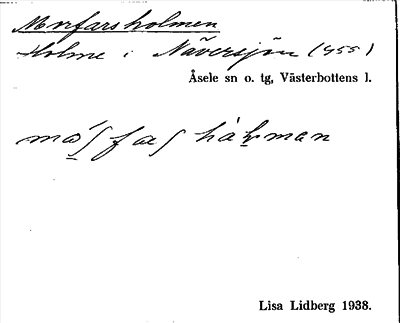 Morfarsholmen
Holme i Näversjön (455)
Åsele sn o. tg, Västerbottens l.
Lisa Lidberg 1938.